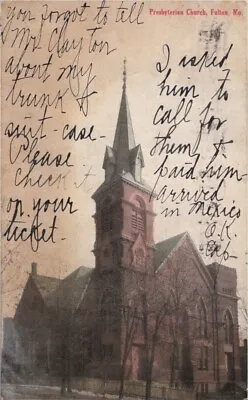 Presbyterian Church, Fulton, Mo.
you forgot to tell
Mr Clayton
about my
trunk &
suit-case-
Please
check it
on your
ticket-
I asked
him to
call for
them &
paid him
arrived
in Mexico
O.K.